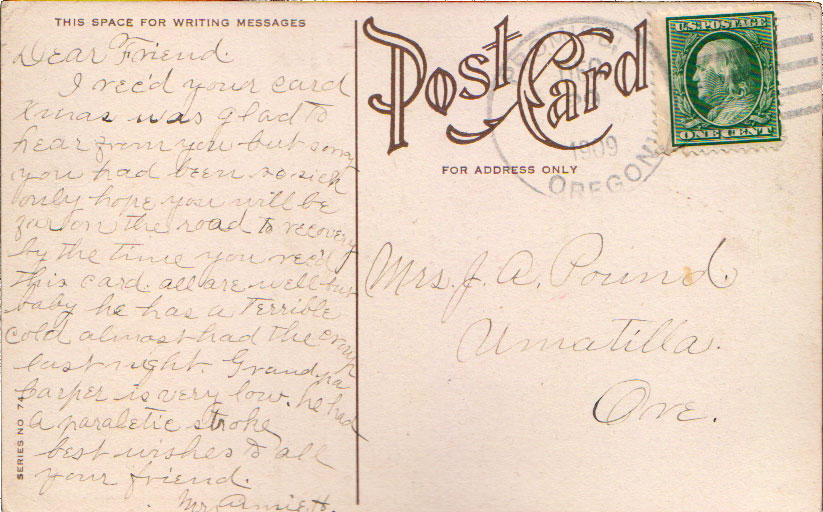 THIS SPACE FOR WRITING MESSAGES
Dear Friend.
I rec'd your card
Xmas was glad to
hear from you but sorry
you had been so sick
only hope you will be
far on the road to recovery
by the time you rec'd
this card. all are well but
baby he has a terrible
cold almost had the croup
last night. Grandpa
Carper is very low. he had
a paraletic stroke
best wishes to all
your friend.
SERIES NO 74
Post Card
FOR ADDRESS ONLY
1909
OREGON
U.S. POSTAGE
ONE CENT
Mrs. J. A. Pound.
Umatilla.
Ore.